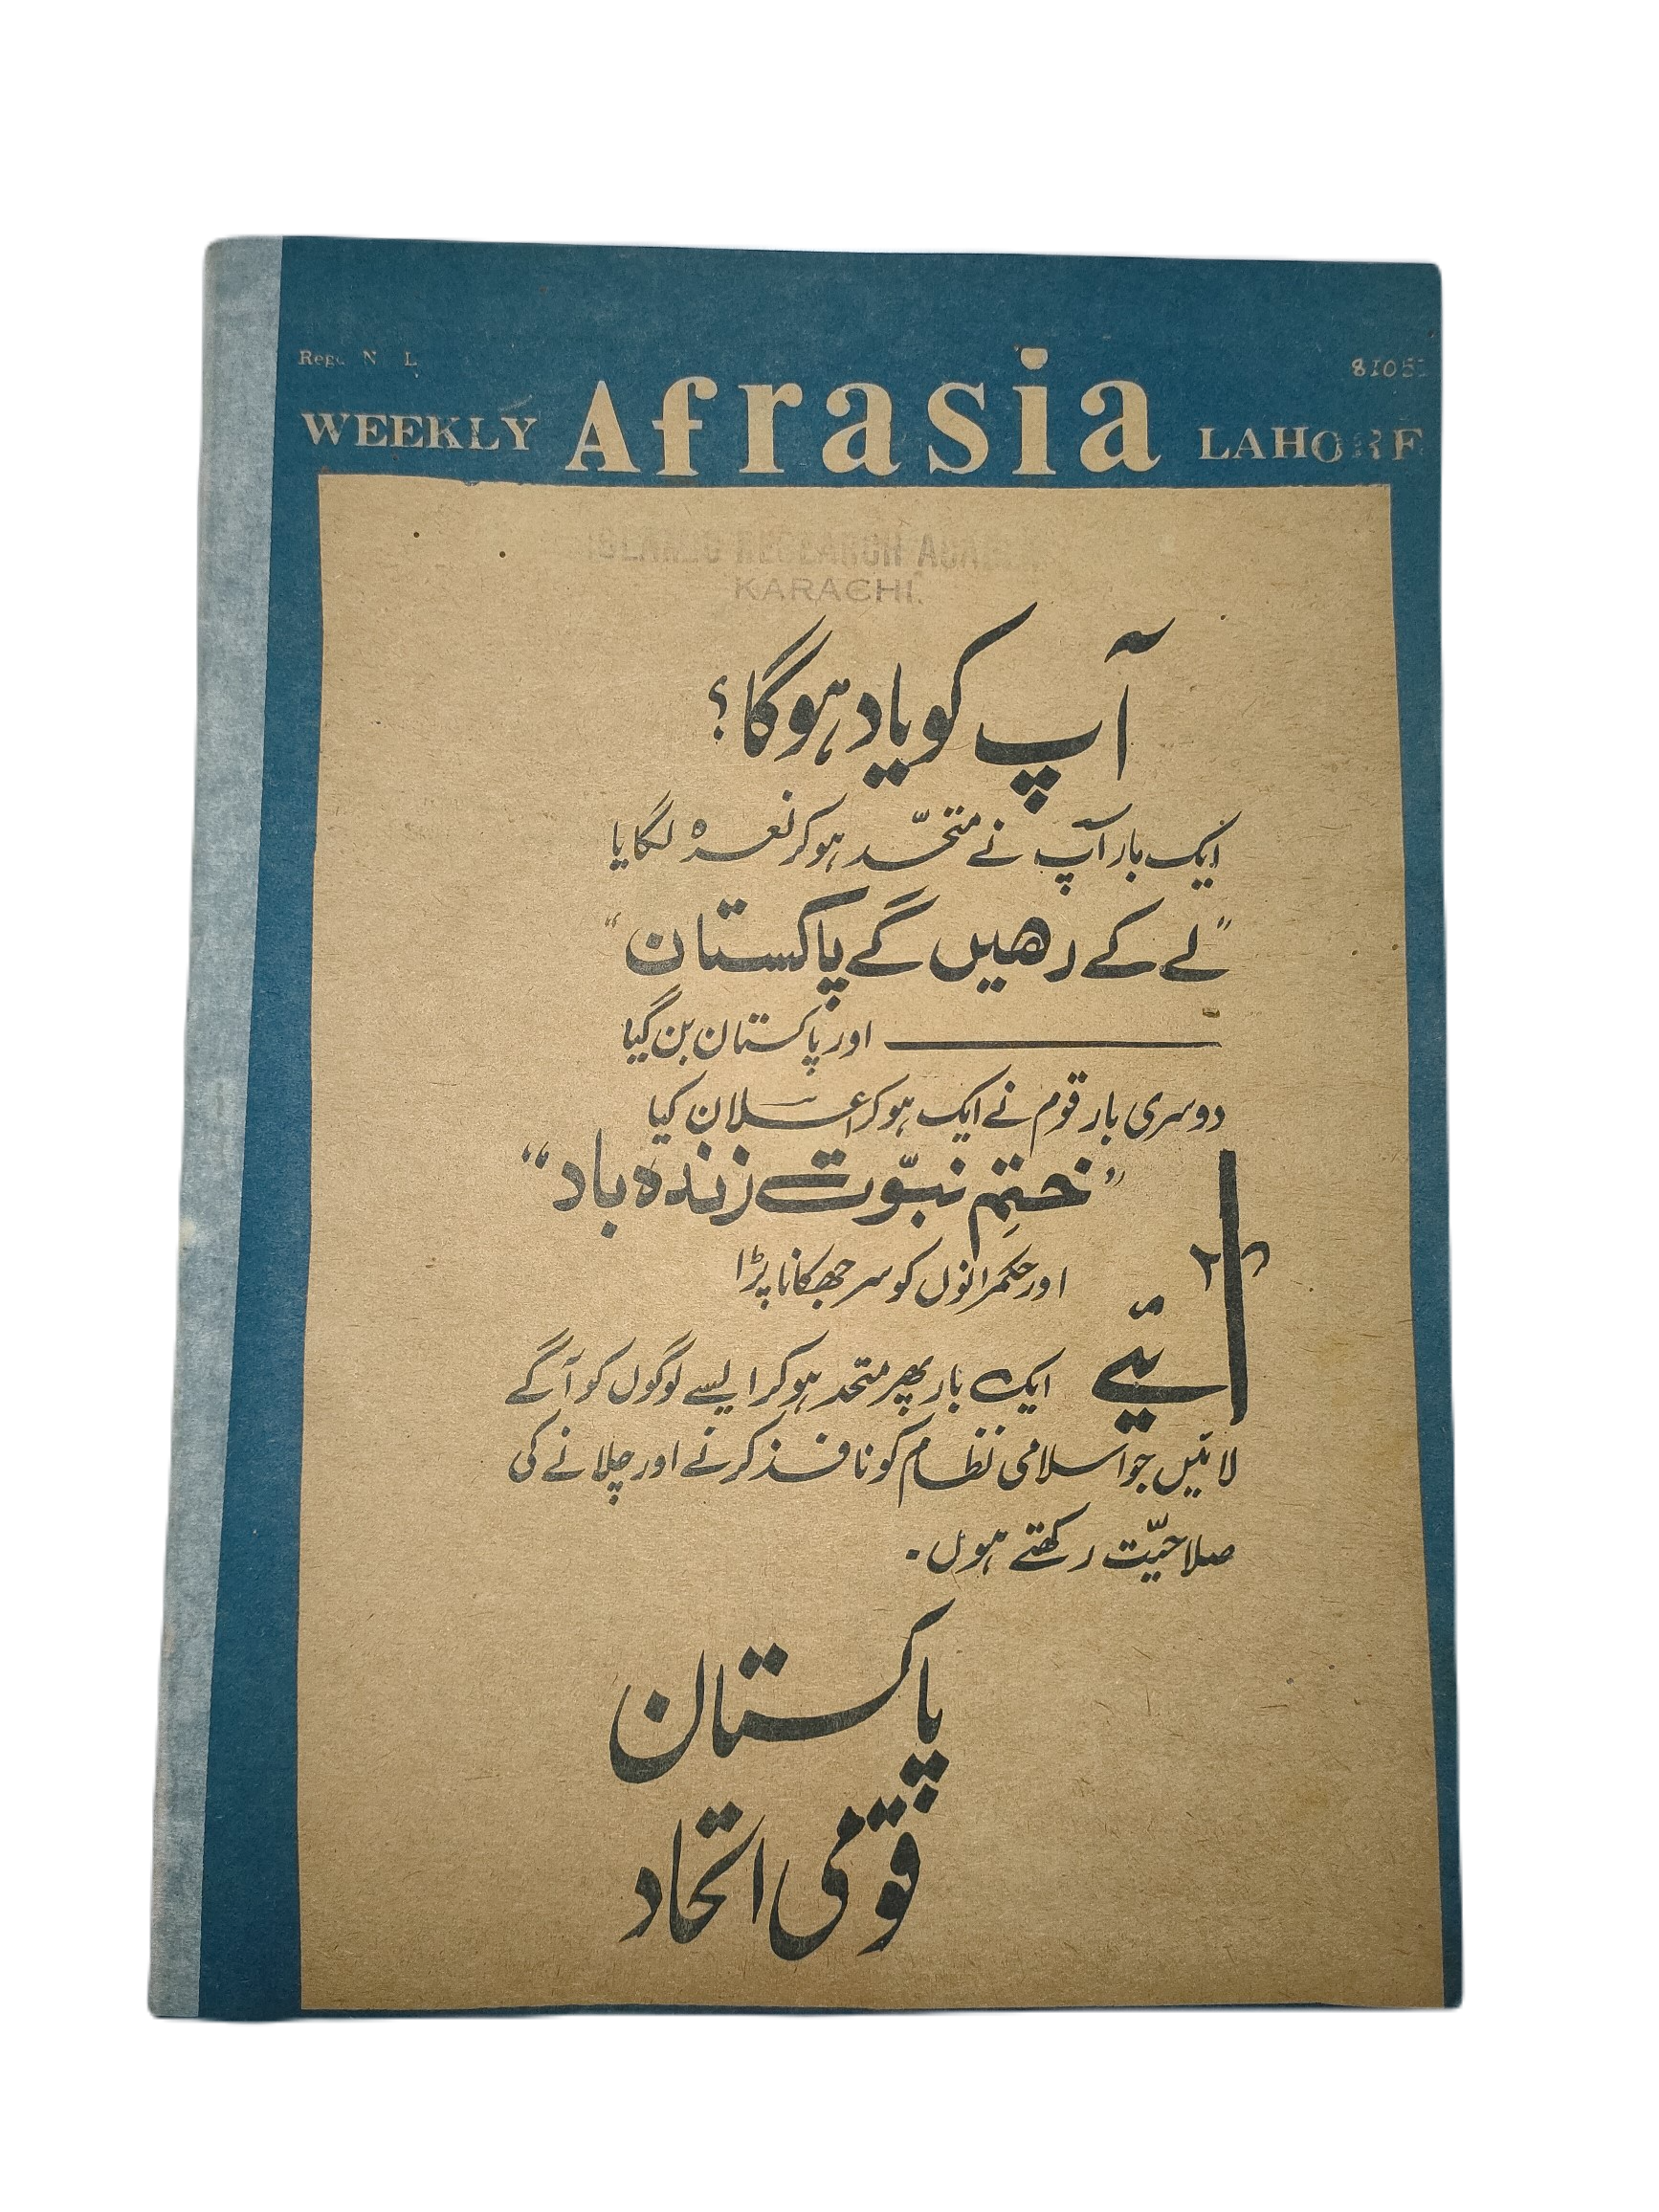 WEEKLY Afrasia LAHORE
ISLAMIC RESEARCH ACADEMY
KARACHI.
آپ کو یاد ہوگا؟
ایک بار آپ نے متحّد ہوکر نعرہ لگایا
"لے کے رھیں گے پاکستان"
اور پاکستان بن گیا
دوسری بار قوم نے ایک ہوکر اعلان کیا
"ختمِ نبوّت زندہ باد"
اور حکمرانوں کو سر جھکانا پڑا
آئیے ایک بار پھر متحد ہوکر ایسے لوگوں کو آگے
لائیں جو اسلامی نظام کو نافذ کرنے اور چلانے کی
صلاحیّت رکھتے ہوں۔
پاکستان
قومی اتحاد